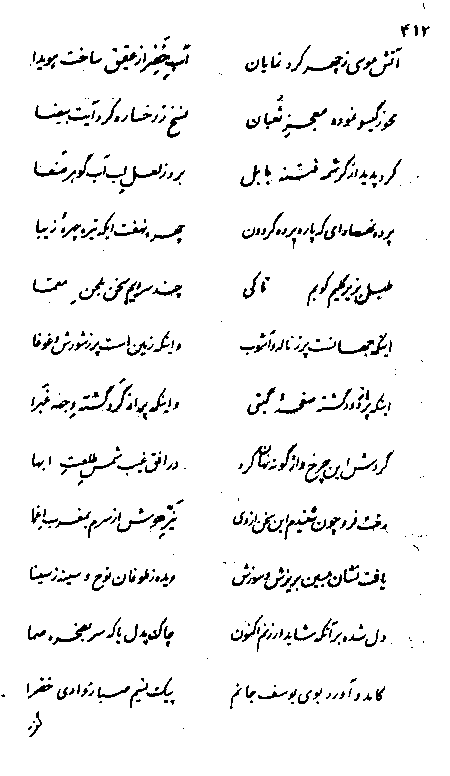 ۴۱۲
آتش موسی ز چهر کرد نمایان آب خضر از عقیق ساخت هویدا
محو ز گیسو نموده معجز ثعبان نسخ ز رخساره کرد آیت بیضا
کرد پدید از کرشمه فتنه بابل بروز لعل لب آب گوهر
پرده نهاده‌ای که پاره پرده گردون چهره نهفت اینکه تیره چهره زیبا
طبل بزیر گلیم کوبم تا کی چند سرایم سخن بلحن معما
اینکه جهانست پر ز ناله و آشوب و اینکه زمین است پر ز شورش و غوغا
اینکه پر از دود گشته صفحه گیتی و اینکه پر از گرد گشته وجه غبرا
گردش این چرخ واژگونه نهان کرد در افق غیب شمس طلعت ابها
رفت فرو چون شنیدم این سخن از وی نیز هوش از سرم بمغرب اغما
یافت نشان مبین بریزش و سوزش دیده ز طوفان نوح و سینه ز سینا
دل شده بر آنکه شاید ار زنم اکنون چاک بدل یا که سر بصخره صما
کامد و آورد بوی یوسف جانم پیک نسیم صبا ز وادی خضرا